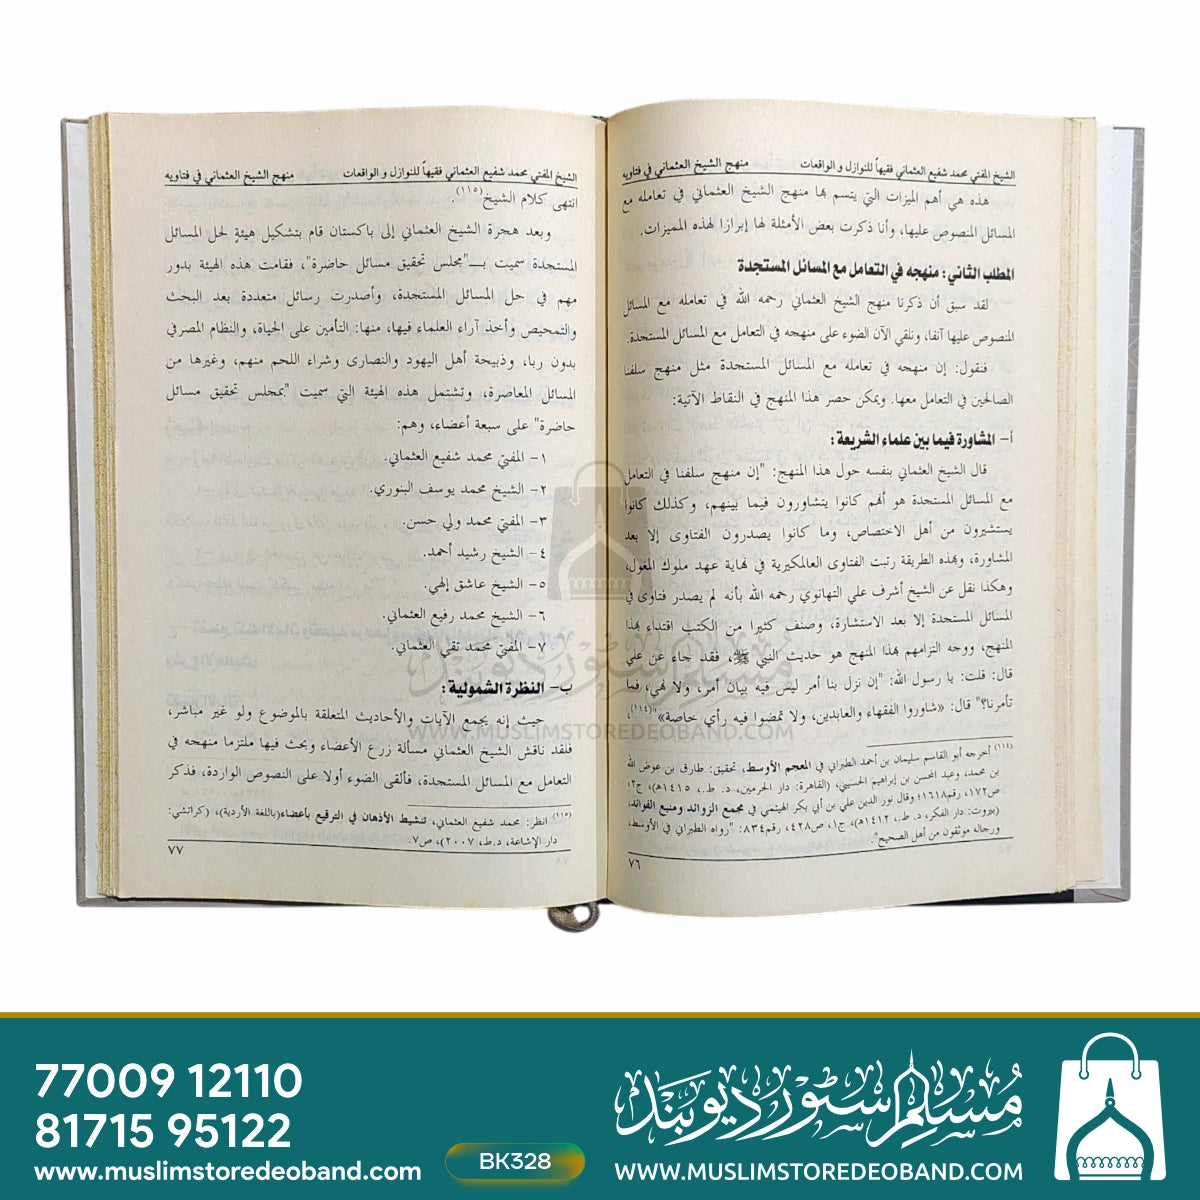 الشيخ المفتي محمد شفيع العثماني فقيهاً للنوازل و الواقعات منهج الشيخ العثماني في فتاويه
هذه هي أهم الميزات التي يتسم بها منهج الشيخ العثماني في تعامله مع
المسائل المنصوص عليها، وأنا ذكرت بعض الأمثلة لها إبرازا لهذه المميزات.
المطلب الثاني: منهجه في التعامل مع المسائل المستجدة
لقد سبق أن ذكرنا منهج الشيخ العثماني رحمه الله في تعامله مع المسائل
المنصوص عليها آنفا، ونلقي الآن الضوء على منهجه في التعامل مع المسائل المستجدة.
فنقول: إن منهجه في تعامله مع المسائل المستجدة مثل منهج سلفنا
الصالحين في التعامل معها. ويمكن حصر هذا المنهج في النقاط الآتية:
أ- المشاورة فيما بين علماء الشريعة:
قال الشيخ العثماني بنفسه حول هذا المنهج: "إن منهج سلفنا في التعامل
مع المسائل المستجدة هو أنهم كانوا يتشاورون فيما بينهم، وكذلك كانوا
يستشيرون من أهل الاختصاص، وما كانوا يصدرون الفتاوى إلا بعد
المشاورة، وبهذه الطريقة رتبت الفتاوى العالمكيرية في نهاية عهد ملوك المغول،
وهكذا نقل عن الشيخ أشرف علي التهانوي رحمه الله بأنه لم يصدر فتاوى في
المسائل المستجدة إلا بعد الاستشارة، وصنف كثيرا من الكتب اقتداء بهذا
المنهج، ووجه التزامهم بهذا المنهج هو حديث النبي ﷺ، فقد جاء عن علي
قال: قلت: يا رسول الله: "إن نزل بنا أمر ليس فيه بيان أمر، ولا نهي، فما
تأمرنا؟" قال: «شاوروا الفقهاء والعابدين، ولا تمضوا فيه رأي خاصة»"(١١٤)،
(١١٤) أخرجه أبو القاسم سليمان بن أحمد الطبراني في المعجم الأوسط، تحقيق: طارق بن عوض الله
بن محمد، وعبد المحسن بن إبراهيم الحسيني، (القاهرة: دار الحرمين، د. ط.، ١٤١٥هـ)، ج٢،
ص١٧٢، رقم١٦١٨؛ وقال نور الدين علي بن أبي بكر الهيثمي في مجمع الزوائد ومنبع الفوائد،
(بيروت: دار الفكر، د. ط.، ١٤١٢هـ)، ج١، ص٤٢٨، رقم٨٣٤: "رواه الطبراني في الأوسط،
ورجاله موثقون من أهل الصحيح".
٧٦
الشيخ المفتي محمد شفيع العثماني فقيهاً للنوازل و الواقعات منهج الشيخ العثماني في فتاويه
انتهى كلام الشيخ(١١٥).
وبعد هجرة الشيخ العثماني إلى باكستان قام بتشكيل هيئةٍ لحل المسائل
المستجدة سميت بــ"مجلس تحقيق مسائل حاضرة"، فقامت هذه الهيئة بدور
مهم في حل المسائل المستجدة، وأصدرت رسائل متعددة بعد البحث
والتمحيص وأخذ آراء العلماء فيها، منها: التأمين على الحياة، والنظام المصرفي
بدون ربا، وذبيحة أهل اليهود والنصارى وشراء اللحم منهم، وغيرها من
المسائل المعاصرة، وتشتمل هذه الهيئة التي سميت "بمجلس تحقيق مسائل
حاضرة" على سبعة أعضاء، وهم:
١- المفتي محمد شفيع العثماني.
٢- الشيخ محمد يوسف البنوري.
٣- المفتي محمد ولي حسن.
٤- الشيخ رشيد أحمد.
٥- الشيخ عاشق إلهي.
٦- الشيخ محمد رفيع العثماني.
٧- المفتي محمد تقي العثماني.
ب- النظرة الشمولية:
حيث إنه يجمع الآيات والأحاديث المتعلقة بالموضوع ولو غير مباشر،
فلقد ناقش الشيخ العثماني مسألة زرع الأعضاء وبحث فيها ملتزما منهجه في
التعامل مع المسائل المستجدة، فألقى الضوء أولا على النصوص الواردة، فذكر
(١١٥) انظر: محمد شفيع العثماني، تنشيط الأذهان في الترقيع بأعضاء(باللغة الأردية)، (كراتشي:
دار الإشاعة، د.ط، ٢٠٠٧)، ص٧.
٧٧
مسلم سٹور دیوبند
WWW.MUSLIMSTOREDEOBAND.COM
77009 12110
81715 95122
www.muslimstoredeoband.com
BK328
مسلم سٹور دیوبند
WWW.MUSLIMSTOREDEOBAND.COM